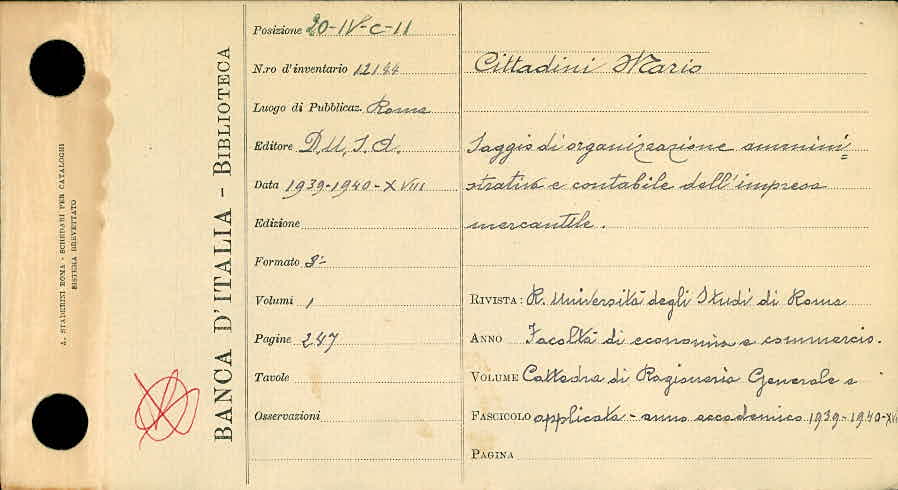 A. STADERINI ROMA - SCHEDARI PER CATALOGHI
SISTEMA BREVETTATO
BANCA D'ITALIA - BIBLIOTECA
Posizione 20-IV-C-11
N.ro d'inventario 12144
Luogo di Pubblicaz. Roma
Editore D.U.S.A.
Data 1939-1940-XVIII
Edizione
Formato 8º
Volumi 1
Pagine 247
Tavole
Osservazioni
Cittadini Mario
Saggio di organizzazione ammini=
strativa e contabile dell'impresa
mercantile.
RIVISTA: R. Università degli Studi di Roma
ANNO Facoltà di economia e commercio.
VOLUME Cattedra di Ragioneria Generale e
FASCICOLO applicata - anno accademico 1939-1940-XVIII
PAGINA